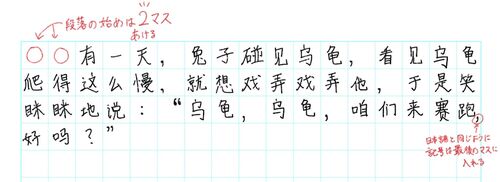 段落の始めは2マス
あける
○○有一天，兔子碰见乌龟，看见乌龟
爬得这么慢，就想戏弄戏弄他，于是笑
眯眯地说：“乌龟，乌龟，咱们来赛跑，
好吗？”
日本語と同じように
記号は最後のマスに
入れる